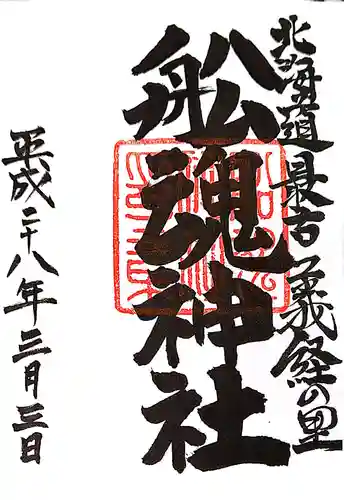 北海道最古 義経の里
船魂神社
平成二十八年三月三日